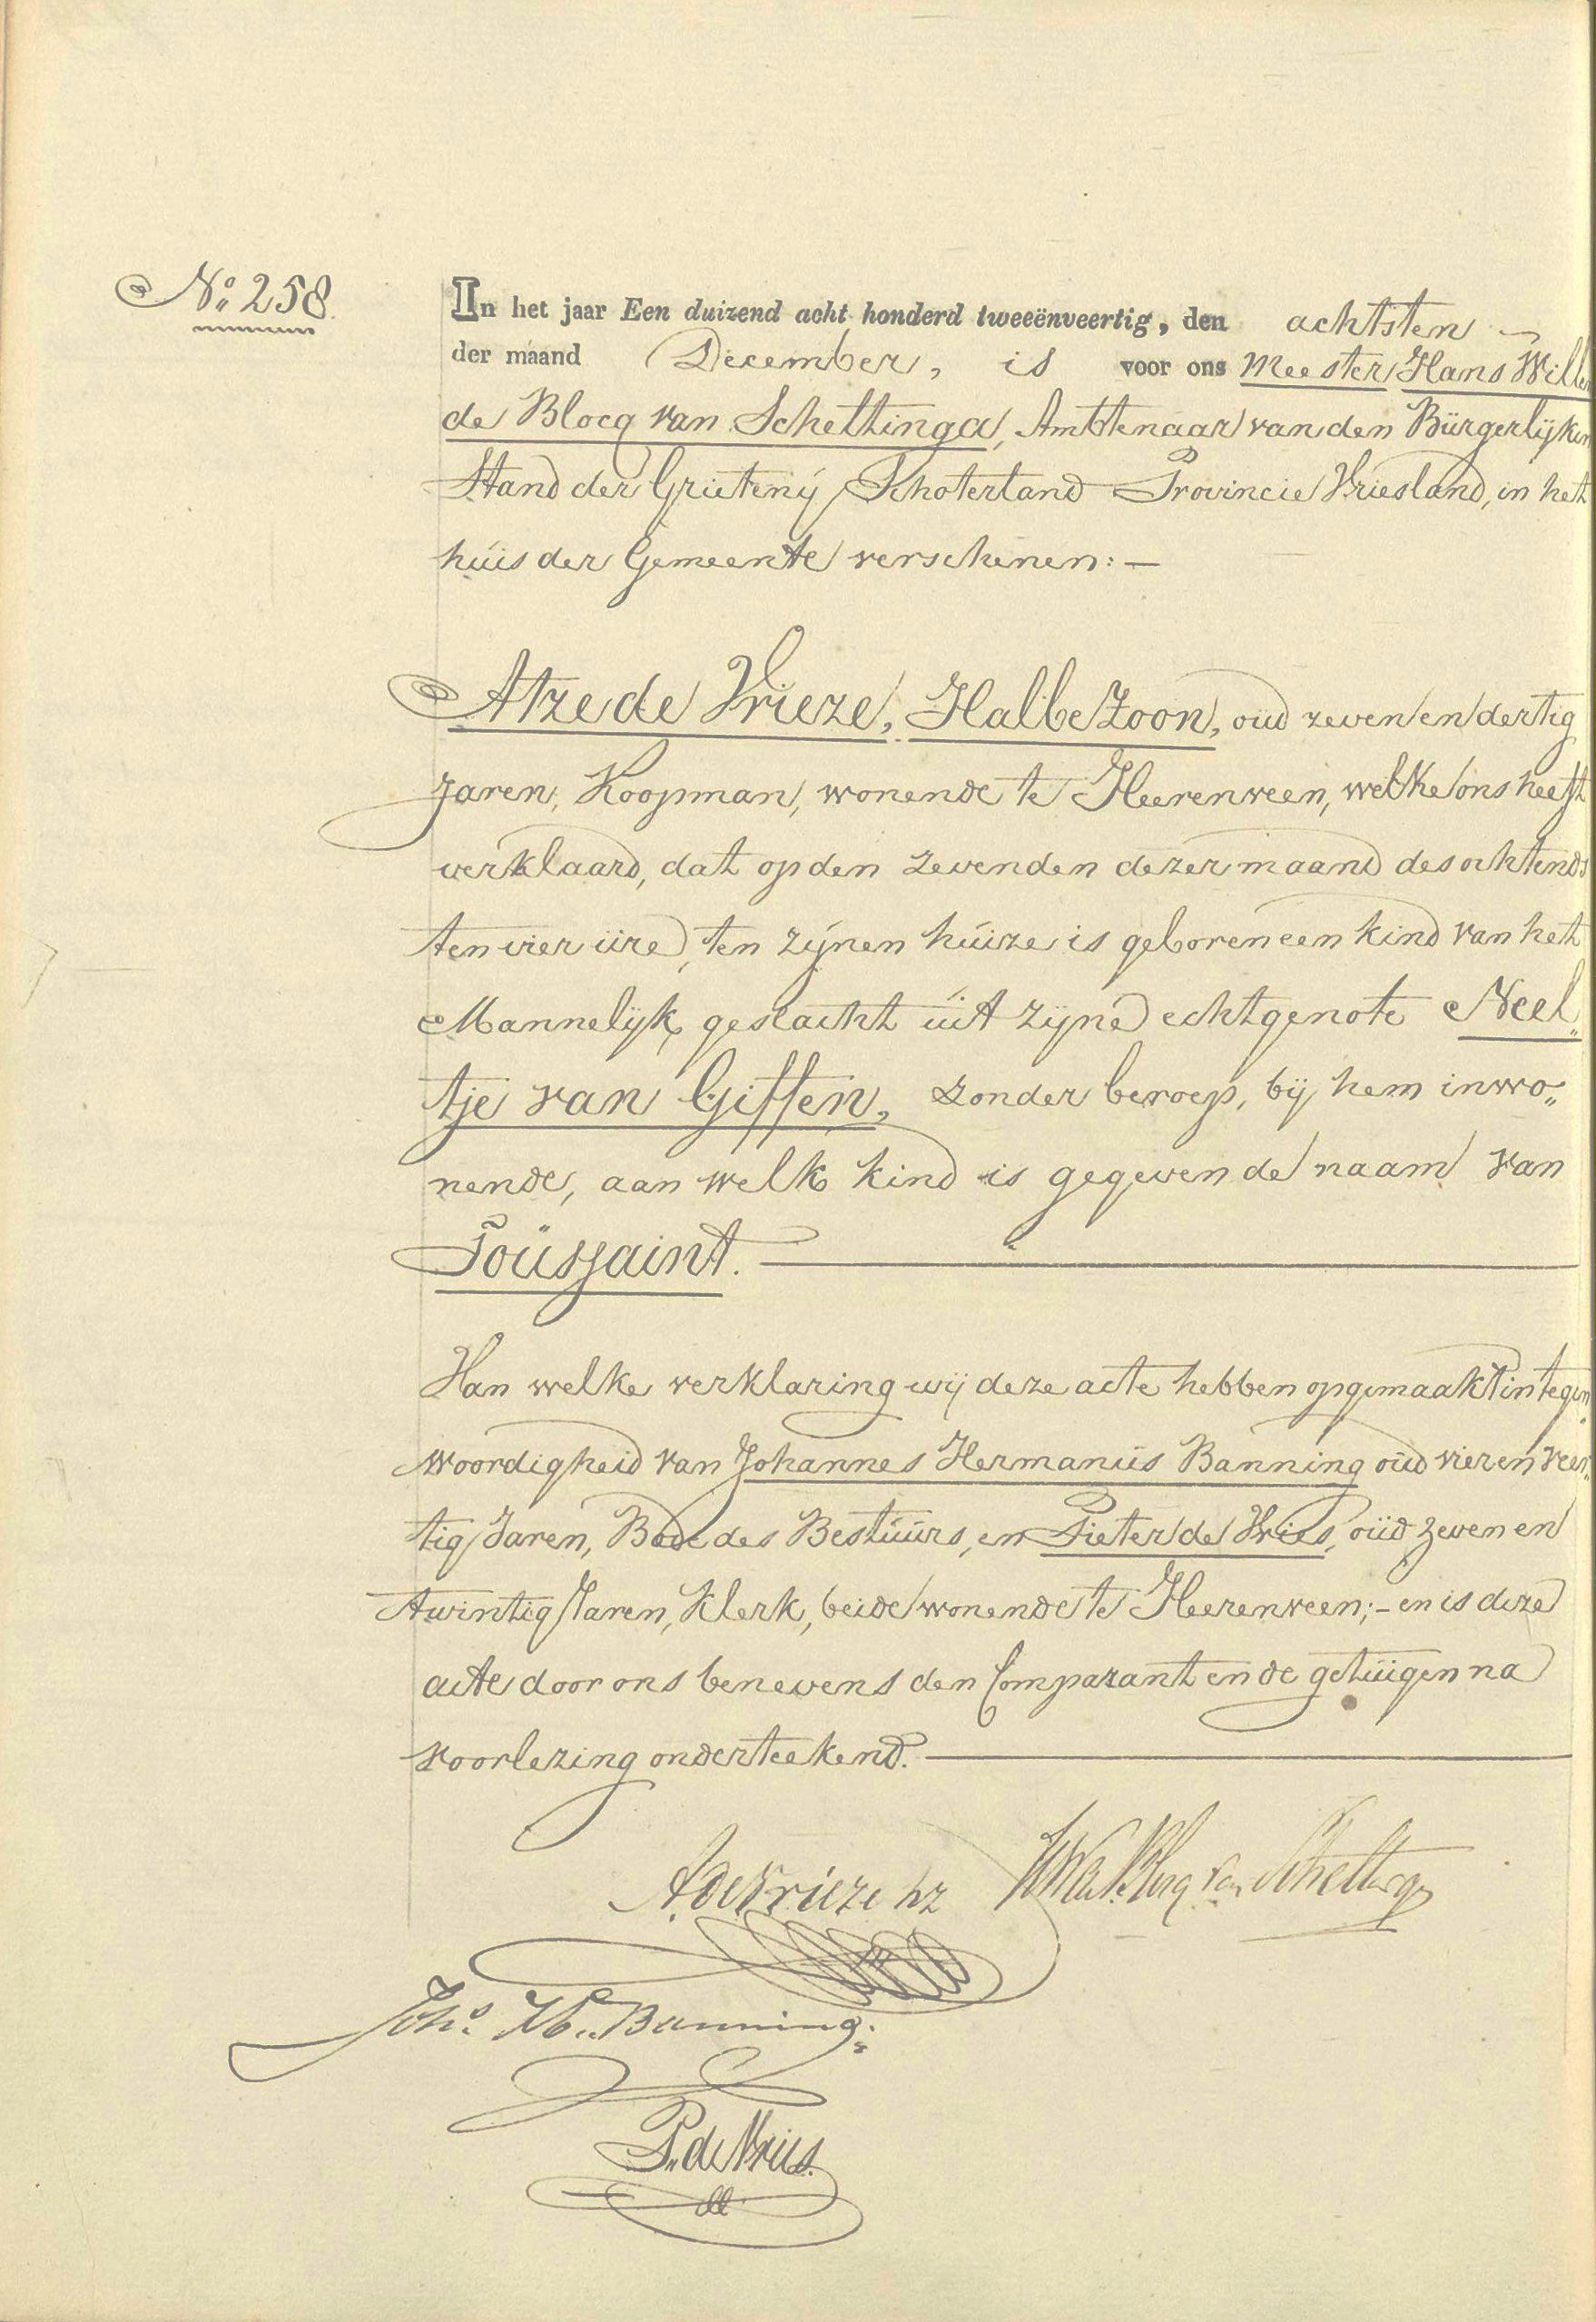 No. 258.
In het jaar Een duizend acht honderd tweeënveertig, den achtsten
der maand December, is voor ons Meester Hans Willem
de Blocq van Scheltinga, Ambtenaar van den Burgerlijken
Stand der Grietenij Schoterland Provincie Vriesland, in het
huis der Gemeente verschenen: —
Atze de Vrieze, Halbe Zoon, oud zeven en dertig
Jaren, Koopman, wonende te Heerenveen, welke ons heeft
verklaard, dat op den zevenden dezer maand des ochtends
ten vier ure, ten zijnen huize is geboren een kind van het
Mannelijk geslacht uit zijne echtgenote Neel„
tje van Giffen, zonder beroep, bij hem inwo„
nende, aan welk kind is gegeven de naam van
Toussaint. —
Van welke verklaring wij deze acte hebben opgemaakt in tegen„
woordigheid van Johannes Hermanus Banning oud vier en veer„
tig Jaren, Bode des Bestuurs, en Pieter de Vries, oud zeven en
twintig Jaren, Klerk, beide wonende te Heerenveen; – en is deze
acte door ons benevens den Comparant en de getuigen na
voorlezing onderteekend. —
A. de Vrieze hz HW de Blocq van Scheltinga
Johs. Hs. Banning.
P. de Vries.